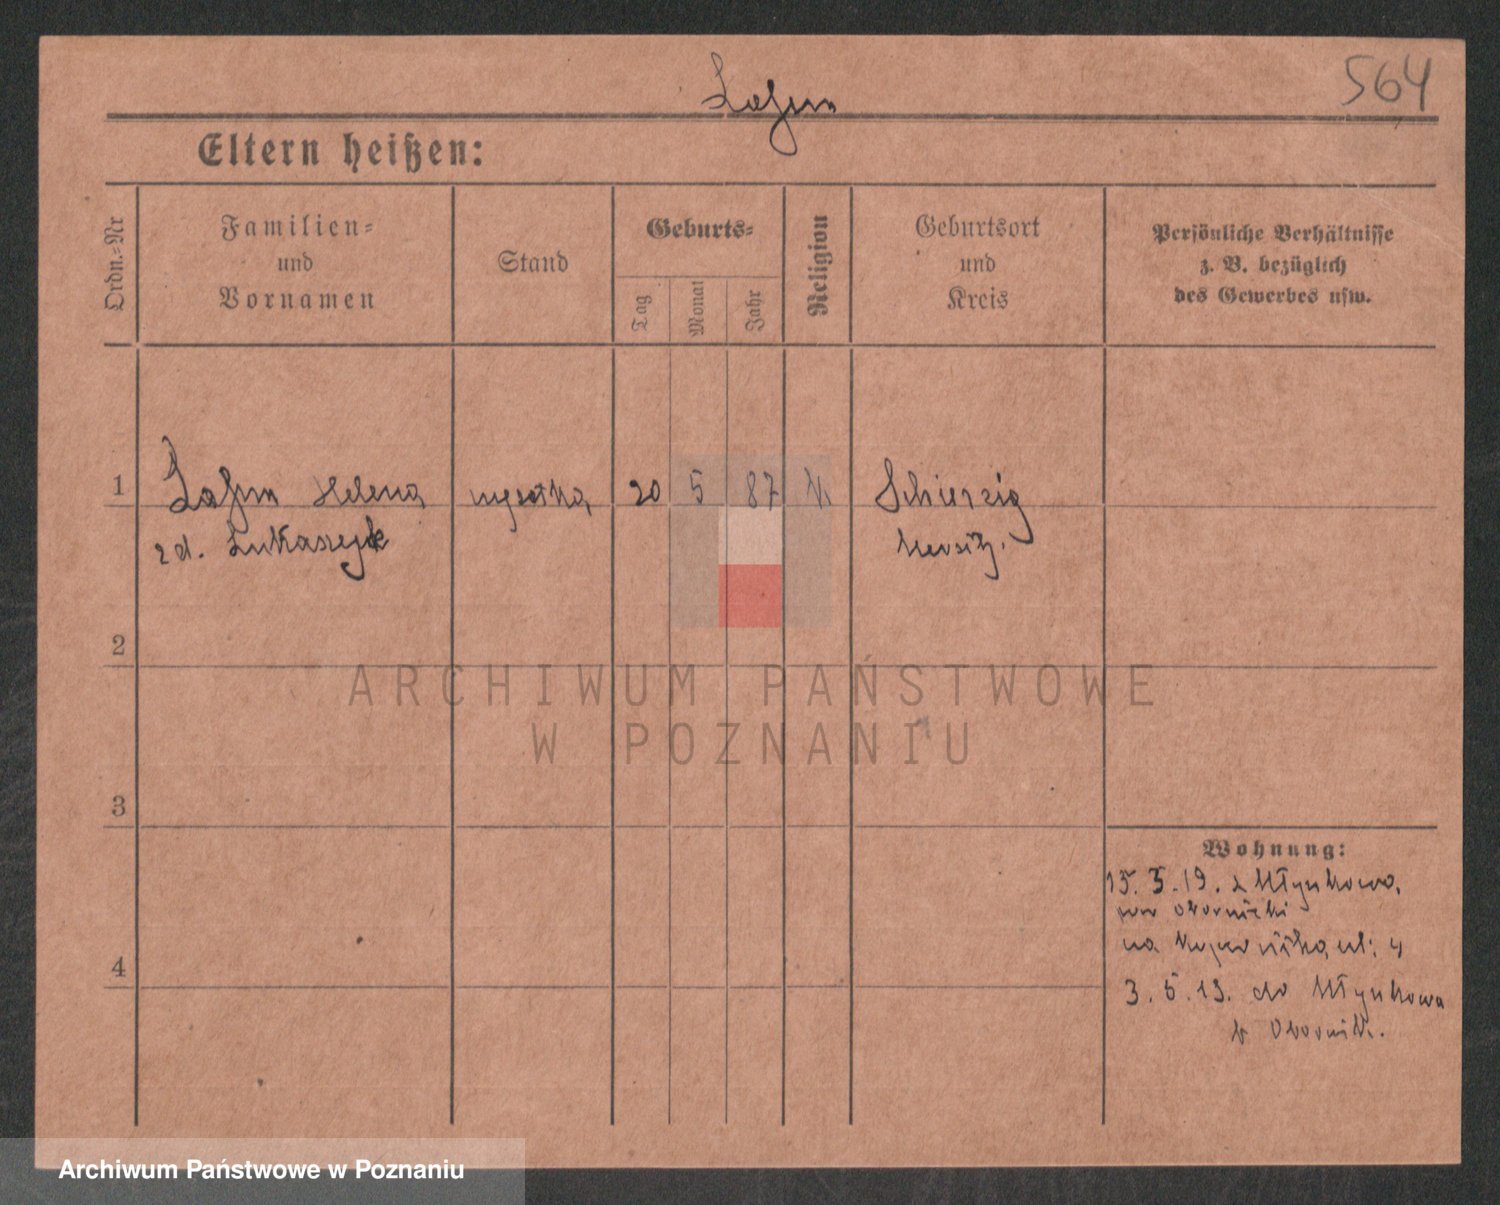 564
Eltern heißen:
Ordn.-Nr
Familien-
und
Vornamen
Stand
Geburts-
Tag
Monat
Jahr
Religion
Geburtsort
und
Kreis
Persönliche Verhältnisse
z. B. bezüglich
des Gewerbes usw.
1
Helena
20 5 87 k
Schierzig
zd. Lukaszyk
2
ARCHIWUM PAŃSTWOWE
W POZNANIU
3
Wohnung:
15. 3. 19. z Młynkowa,
pow obornicki
na
4
3. 5. 19. do Młynkowa
b Obornik.
Archiwum Państwowe w Poznaniu